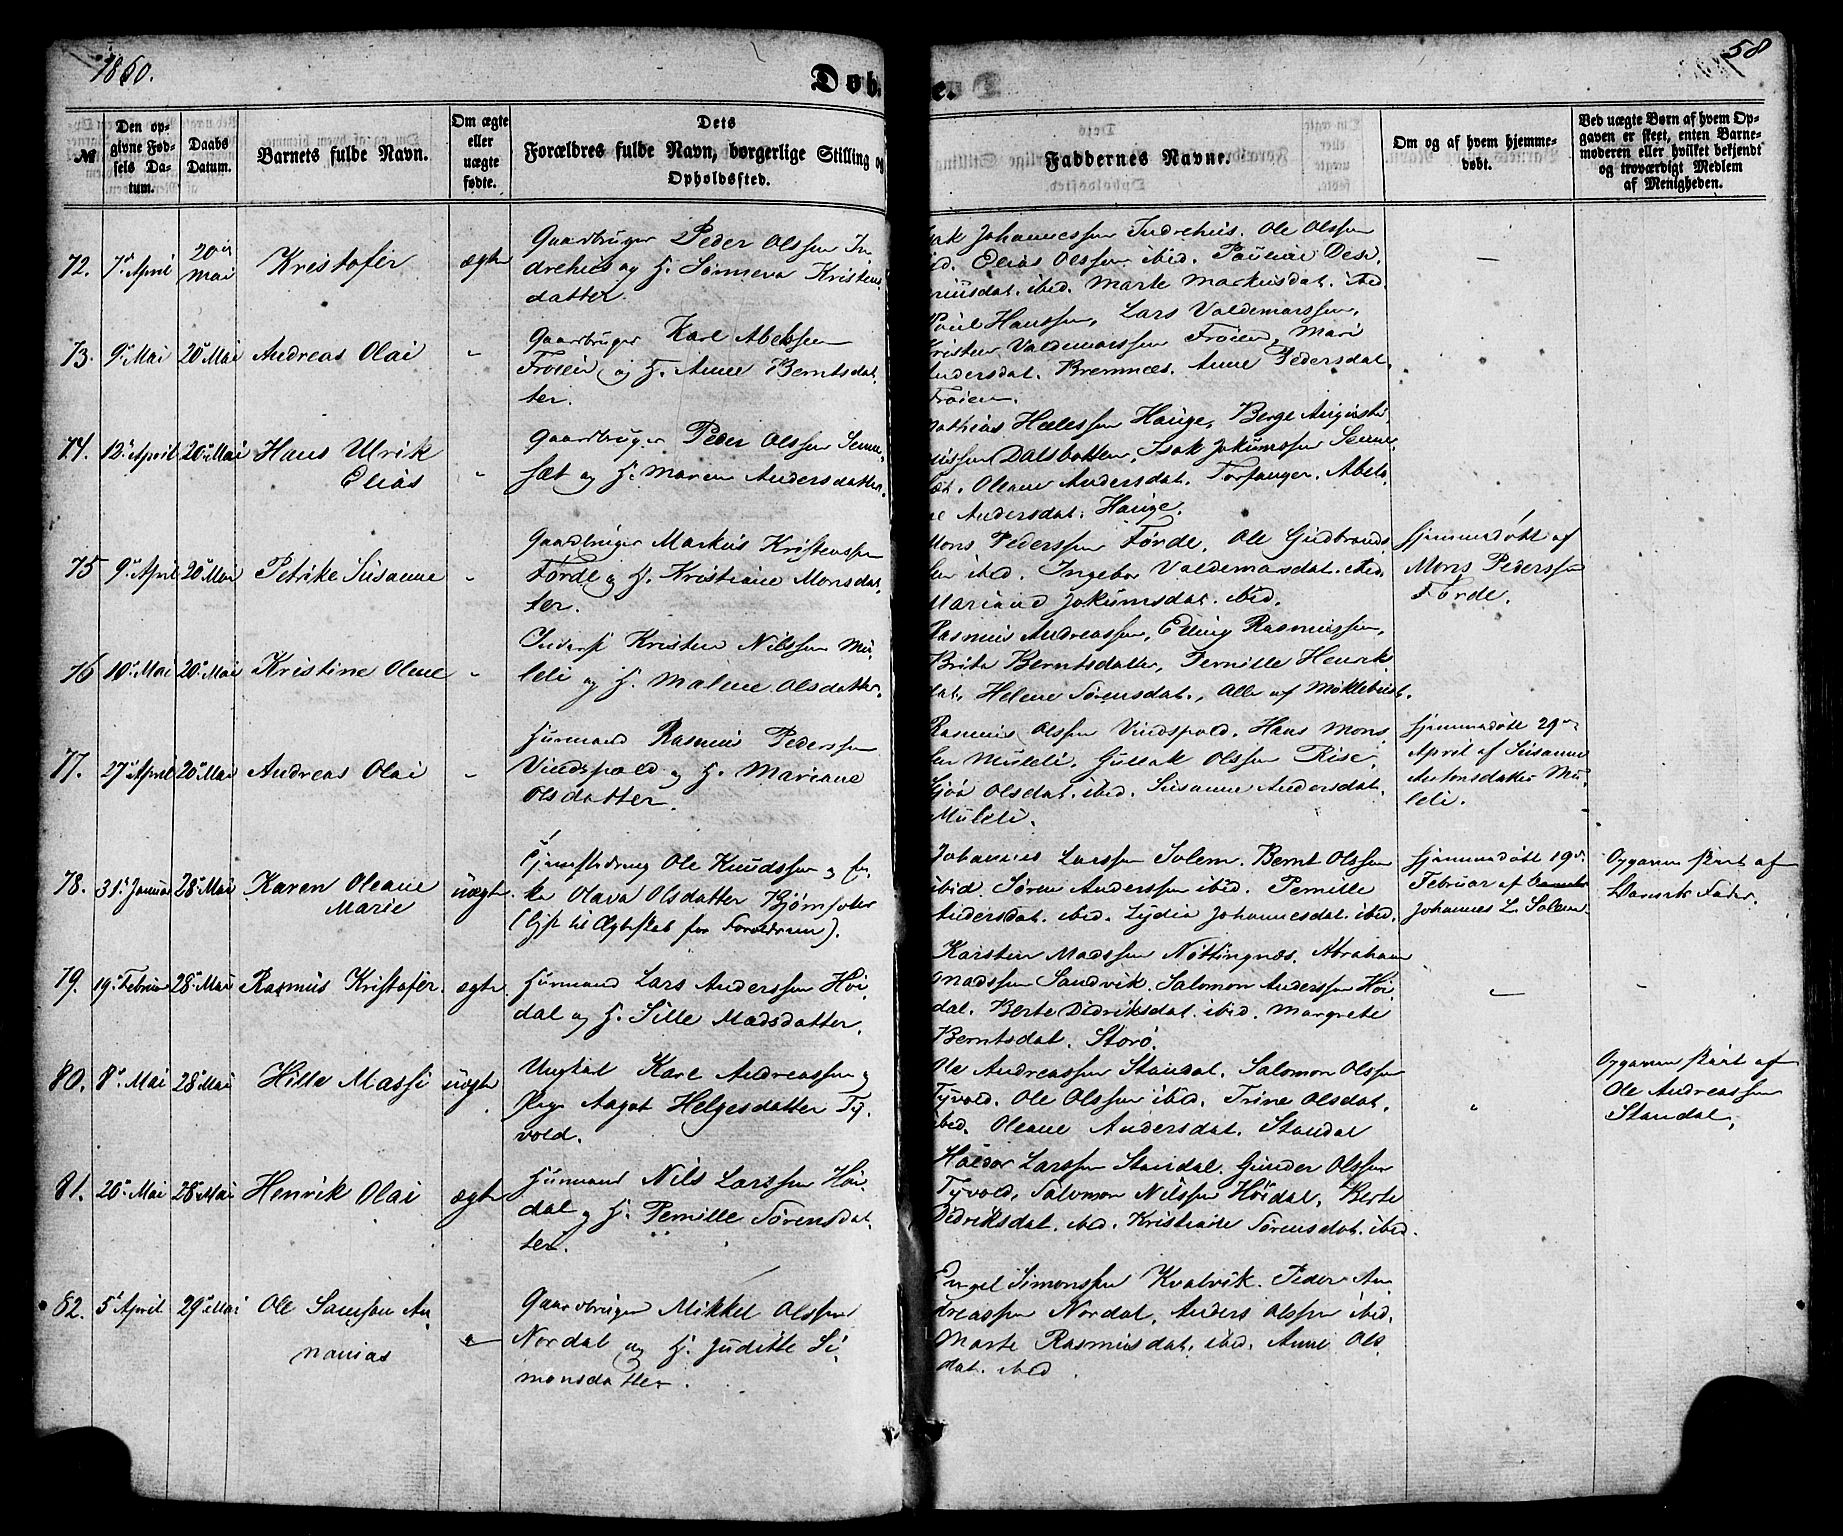 1860.
58
Døb
e.
№
Den op-
givne Fød-
sels Da-
tum.
Daabs
Datum.
Barnets fulde Navn.
Om ægte
eller
uægte
fødte.
Dets
Forældres fulde Navn, borgerlige Stilling og
Opholdssted.
Faddernes Navne.
Om og af hvem hjemme-
døbt.
Ved uægte Børn af hvem Op-
gaven er skeet, enten Barne-
moderen eller hvilket bekjendt
og troværdigt Medlem
af Menigheden.
72. 7de April 20de Mai Kristofer ægte
Gaardbruger Peder Olssen In-
drehus og H. Sønneva Kristens
datter.
Johannessen Indrehus. Ole Olssen
Elias Olssen ibid.
ibid. Marte Markusdat. ibid
73. 9de Mai 20de Mai Andreas Olai "
Gaardbruger Karl Abelssen
Frøien og H. Anne Berntsdat,
ter.
Poul Hanssen, Lars Valdemarssen,
Kristen Valdemarssen Frøien, Mari
Andersdat. Bremnes. Anne Pedersdat.
Frøien.
74. 12te April 20de Mai Hans Ulrik
Elias "
Gaardbruger Peder Olssen Senne-
sæt og H. Maren Andersdatter.
Mathias Hauge, Berge
Dalsbotten, Isak Jokumssen Senne
sæt. Oleane Andersdat. Torfanger. Abelo-
ne Andersdat. Hauge.
75 9de April 20de Mai Petrike Susanne "
Gaardbruger Markus Kristenssen
Førde og H. Kristiane Monsdat,
ter.
Mons Pederssen Førde. Ole Gudbrands
sen ibid. Ingebor Valdemarsdat. ibid.
Mariane Jokumsdat. ibid.
Hjemmedøbt af
Mons Pederssen
Førde.
76 10de Mai 20de Mai Kristine Olene "
Inderst Kristen Nilssen Mu-
leli og H. Malene Olsdatter.
Rasmus Andreassen, Elling Rasmussen,
Brita Berntsdatter, Pernille Henriks
dat. Helene Sørensdat., Alle af Møklebust.
77. 27de April 20de Mai Andreas Olai "
Husmand Rasmus Pederssen
Vindspold og H. Mariane
Olsdatter.
Rasmus Olssen Vindspold. Hans Mons
sen Muleli. Gullak Olssen Rise,
Olsdat. ibid. Susanne Andersdat.
Muleli.
Hjemmedøbt 29de
April af Susanne
Antonsdatter Mu-
leli.
78. 31te Januar 28de Mai Karen Oleane
Marie uægte
Tjenestedreng Ole Knudssen og En-
ke Olava Olsdatter
(Gift til Ægteskab for Forældrene).
Johannes Larssen Solem. Bernt Olssen
ibid Søren Anderssen ibid. Pernille
Andersdat. ibid. Lydia Johannesdat. ibid.
Hjemmedøbt 19de
Februar af
Johannes L. Solem.
Opgaven skeet af
Barnets Fader.
79. 19de Februar 28de Mai Rasmus Kristofer. ægte
Husmand Lars Anderssen Høi-
dal og H. Sille Madsdatter.
Karsten Madssen Nøttingnæs. Abraham
Madssen Sandvik. Salomon Anderssen Høi-
dal. Berte Didriksdat. ibid. Margrete
Berntsdat. Storø.
80. 8de Mai 28de Mai Hille Massi uægte
Ungkarl Karl Andreassen og
Pige Aagot Helgesdatter Ty-
vold.
Ole Andreassen Standal. Salomon Olssen
Tyvold. Ole Olssen ibid. Trine Olsdat.
ibid. Oleane Andersdat. Standal
"
Opgaven skeet af
Ole Andreassen
Standal.
81. 20de Mai 28de Mai Henrik Olai ægte
Husmand Nils Larssen Høi-
dal og H. Pernille Sørensdat-
ter.
Haldor Larssen Standal. Gunder Olssen
Tyvold. Salomon Nilssen Høidal, Berte
Didriksdat. ibid. Kristiane Sørensdat. ibid.
82. 5te April 29de Mai Ole Samson An-
nanias "
Gaardbruger Mikkel Olssen
Nordal og H. Juditte Si-
monsdatter.
Engel Simonssen Kvalvik. Peder An-
dreassen Nordal, Anders Olssen ibid.
Marte Rasmusdat. ibid. Anne Ols
dat. ibid